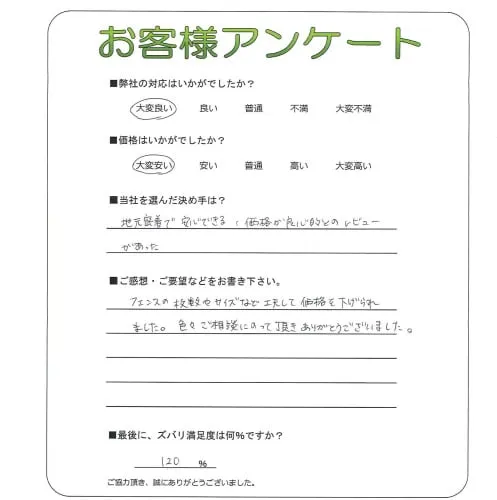 お客様アンケート
■弊社の対応はいかがでしたか？
大変良い 良い 普通 不満 大変不満
■価格はいかがでしたか？
大変安い 安い 普通 高い 大変高い
■当社を選んだ決め手は？
地元密着で安心できる 価格が良心的とのレビュー
があった
■ご感想・ご要望などをお書き下さい。
フェンスの枚数やサイズなど工夫して価格を下げられ
ました。色々ご相談にのって頂きありがとうございました。
■最後に、ズバリ満足度は何％ですか？
120 ％
ご協力頂き、誠にありがとうございました。